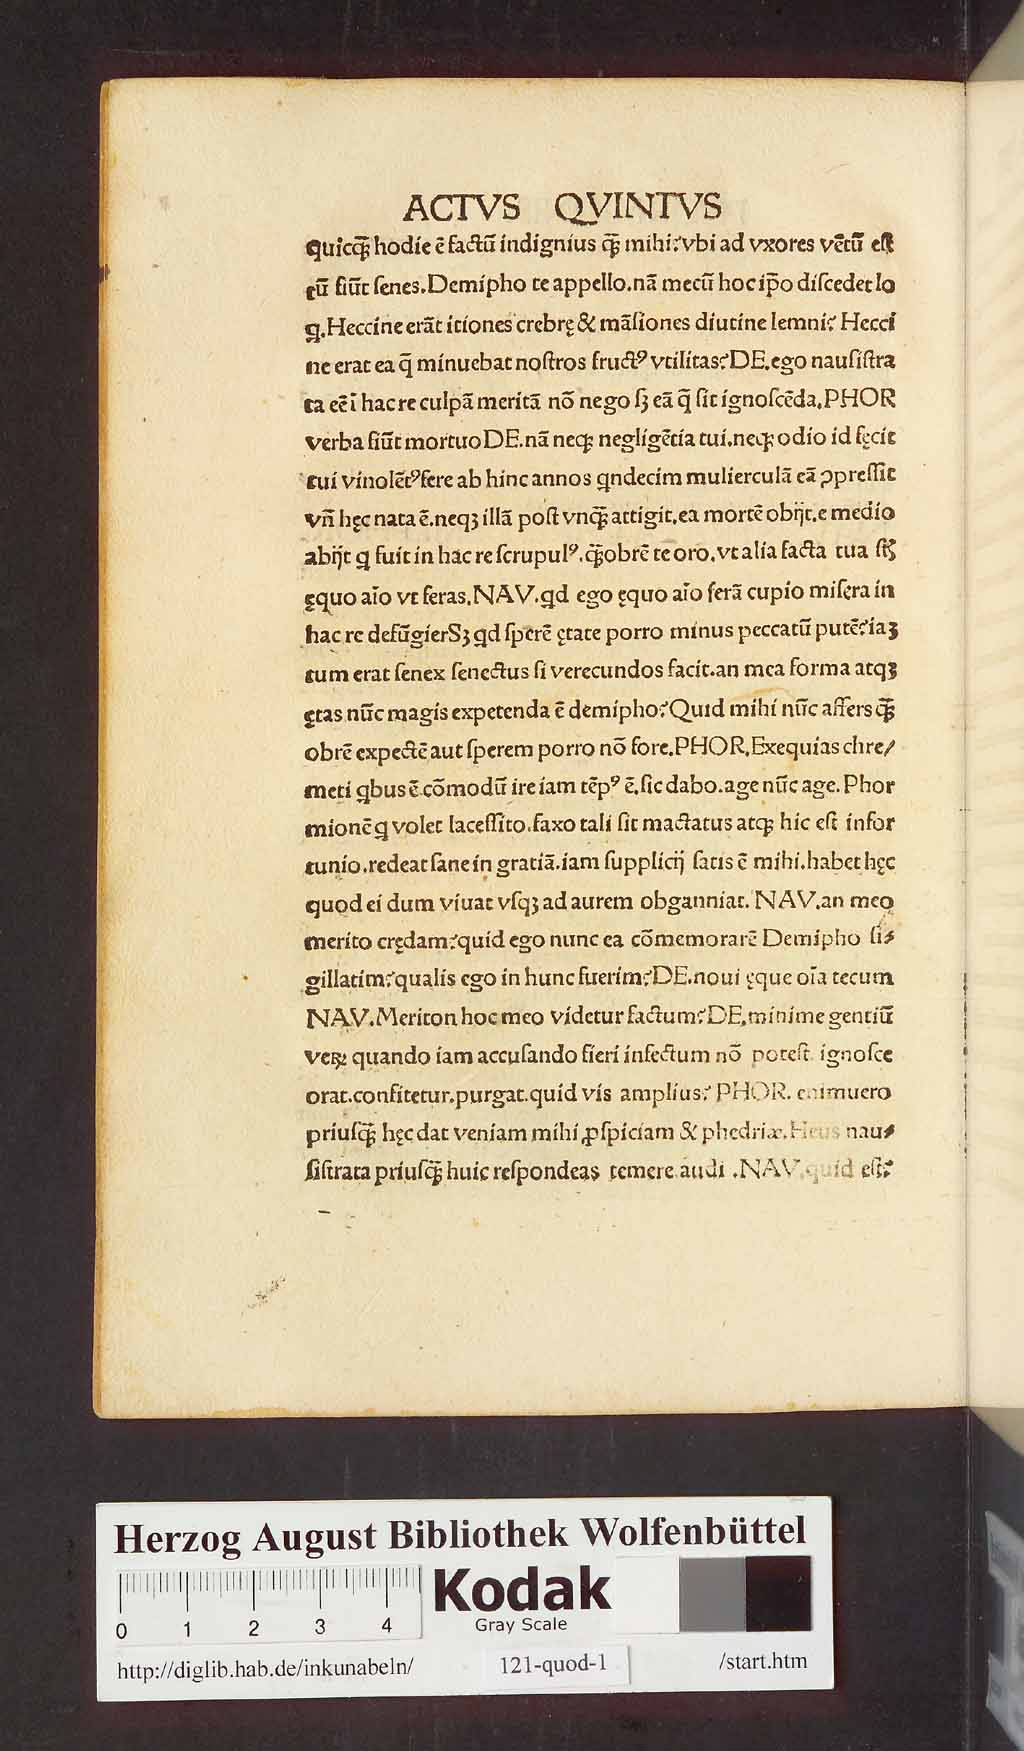 ACTVS QVINTVS
quicqꝫ̄ hodie ē factū indignius qꝫ̄ mihi? vbi ad vxores vētū eſt
tū fiūt ſenes. Demipho te appello. nā mecū hoc ip̄o diſcedet lo
q. Heccine erāt itiones crebrę & māſiones diutine lemni? Hecci
ne erat ea q̄ minuebat noſtros fructꝰ vtilitas? DE. ego nauſiſtra
ta eē ī hac re culpā meritā nō nego ſꝫ eā q̄ ſit ignoſcēda. PHOR
verba fiūt mortuo DE. nā neqꝫ negligētia tui. neqꝫ odio id fęcit
tui vinolētꝰ fere ab hinc annos qndecim mulierculā eā ꝯpreſſit
vn̄ hęc nata ē. neqꝫ illā poſt vnqꝫ̄ attigit. ea mortē obijt. e medio
abijt q fuit in hac re ſcrupulꝰ. qꝫ̄obrē te oro. vt alia facta tua ſīt
ęquo aīo vt feras. NAV. qd ego ęquo aīo ferā cupio miſera in
hac re defūgier Sꝫ qd ſperē ętate porro minus peccatū putē? iaꝫ
tum erat ſenex ſenectus ſi verecundos facit. an mea forma atqꝫ
ętas nūc magis expetenda ē demipho? Quid mihi nūc affers qꝫ̄
obrē expectē aut ſperem porro nō fore. PHOR. Exequias chre/
meti qbus ē cōmodū ire iam tēpꝰ ē. ſic dabo. age nūc age. Phor
mionē q volet laceſſito. faxo tali ſit mactatus atqꝫ hic eſt infor
tunio. redeat ſane in gratiā. iam ſupplicij ſatis ē mihi. habet hęc
quod ei dum viuat vſqꝫ ad aurem obganniat. NAV. an meo
merito crędam? quid ego nunc ea cōmemorarē Demipho ſi/
gillatim? qualis ego in hunc fuerim? DE. noui ęque oīa tecum
NAV. Meriton hoc meo videtur factum? DE. minime gentiū
veꝝ quando iam accuſando fieri infectum nō poteſt ignoſce
orat. confitetur. purgat. quid vis amplius? PHOR. enimuero
priuſqꝫ̄ hęc dat veniam mihi ꝓſpiciam & phedriæ. Heus nau/
ſiſtrata priuſqꝫ̄ huic reſpondeas temere audi . NAV. quid eſt?
Herzog August Bibliothek Wolfenbüttel
Kodak
Gray Scale
0 1 2 3 4
http://diglib.hab.de/inkunabeln/ 121-quod-1 /start.htm